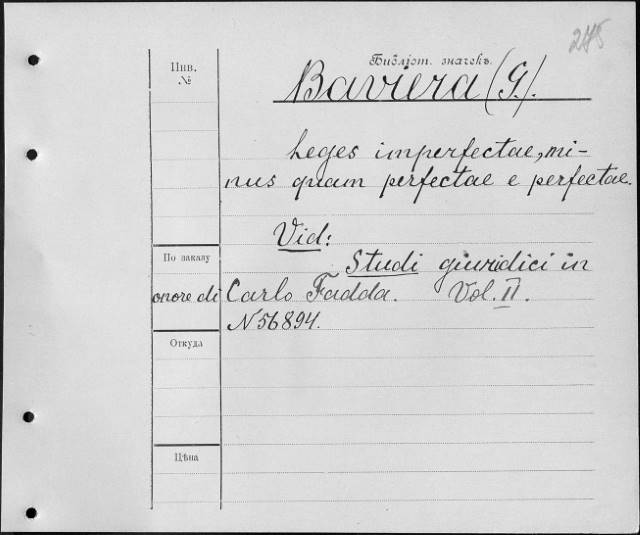 285
Инв.
№
Библіот. значекъ.
Baviera (G.).
Leges imperfectae, mi-
nus quam perfectae e perfectae.
Vid:
По заказу
Studi giuridici in
onore di Carlo Fadda. Vol. II.
N 56894.
Откуда
Цѣна